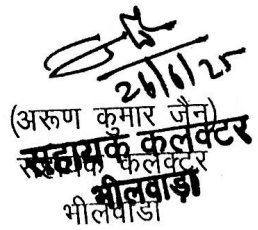 26/6/25
(अरूण कुमार जैन)
सहायक कलेक्टर
सहायक कलेक्टर
भीलवाड़ा
भीलवाडा